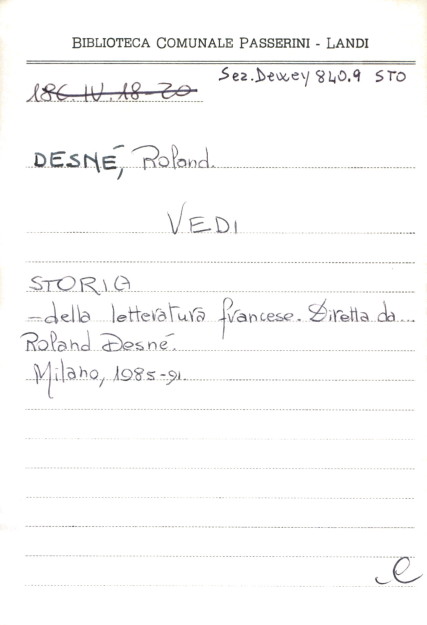 BIBLIOTECA COMUNALE PASSERINI - LANDI
Sez. Dewey 840.9 STO
186.IV.18-20
DESNÉ, Roland.
VEDI
STORIA
- della letteratura francese. Diretta da...
Roland Desné.
Milano, 1985-91.
e